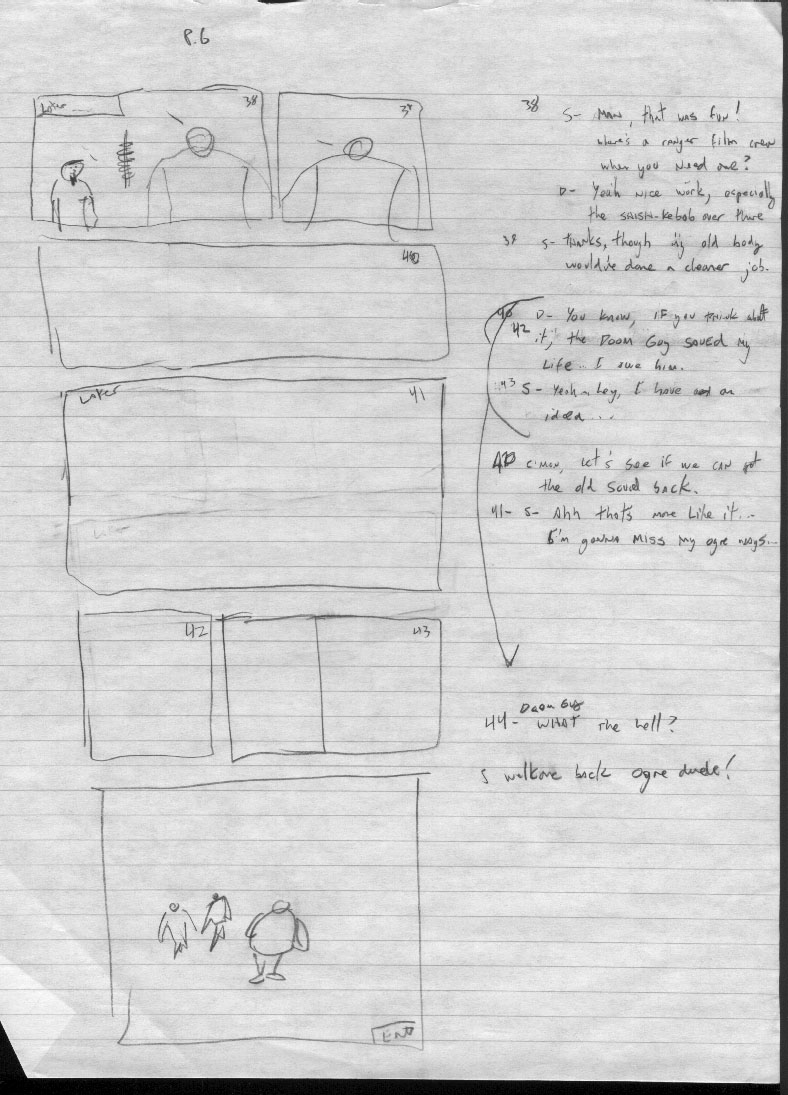 P.6
Later
38
39
40
Later
41
42
43
END
38
S- MAN, that was fun!
where's a ranger film crew
when you need one?
D- Yeah nice work, especially
the SHISH-Kebob over there
39 S- thanks, though my old body
would've done a cleaner job.
40
42
D- You know, IF you think about
it, the Doom Guy saved my
Life... I owe him.
43 S- Yeah... hey, I have an
idea...
40 C'mon, Let's see if we can get
the old squad back.
41- S- Ahh that's more like it...
I'm gonna miss my ogre ways...
Doom Guy
44- WHAT the hell?
S welcome back ogre dude!